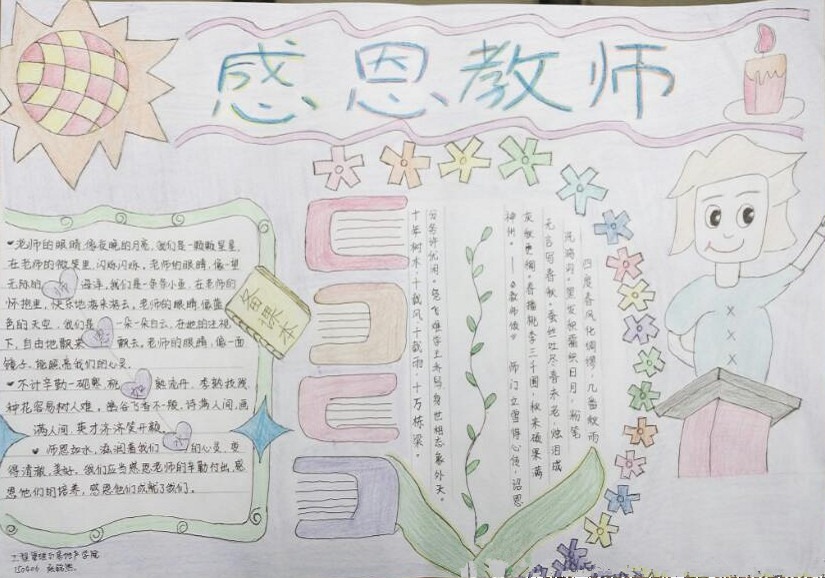 感恩教师
老师的眼睛,像夜晚的月亮,我们是一颗颗星星,
在老师的微笑里,闪烁闪烁。老师的眼睛,像一望
无际的海洋,我们是一条条小鱼,在老师的
怀抱里,快乐地游来游去。老师的眼睛,像蓝
色的天空,我们是一朵一朵白云,在她的注视
下,自由地飘来飘去。老师的眼睛,像一面
镜子,能照亮我们的心灵。
不计辛勤一砚寒,桃熟流丹,李熟枝残,
种花容易树人难。幽谷飞香不一般,诗满人间,画
满人间,英才济济笑开颜。
师恩如水,滋润着我们的心灵,变
得清澈、美好。我们应当感恩老师的辛勤付出,感
恩他们的培养,感恩他们成就了我们。
备课本
四度春风化绸缪,几番秋雨
洗鸿沟。黑发积霜织日月,粉笔
无言写春秋。蚕丝吐尽春未老,烛泪成
灰秋更稠。春播桃李三千圃,秋来硕果满
神州。——《教师颂》
师门立雪
十年树木,十载风,十载雨,十万栋梁。
工程管理与房地产学院